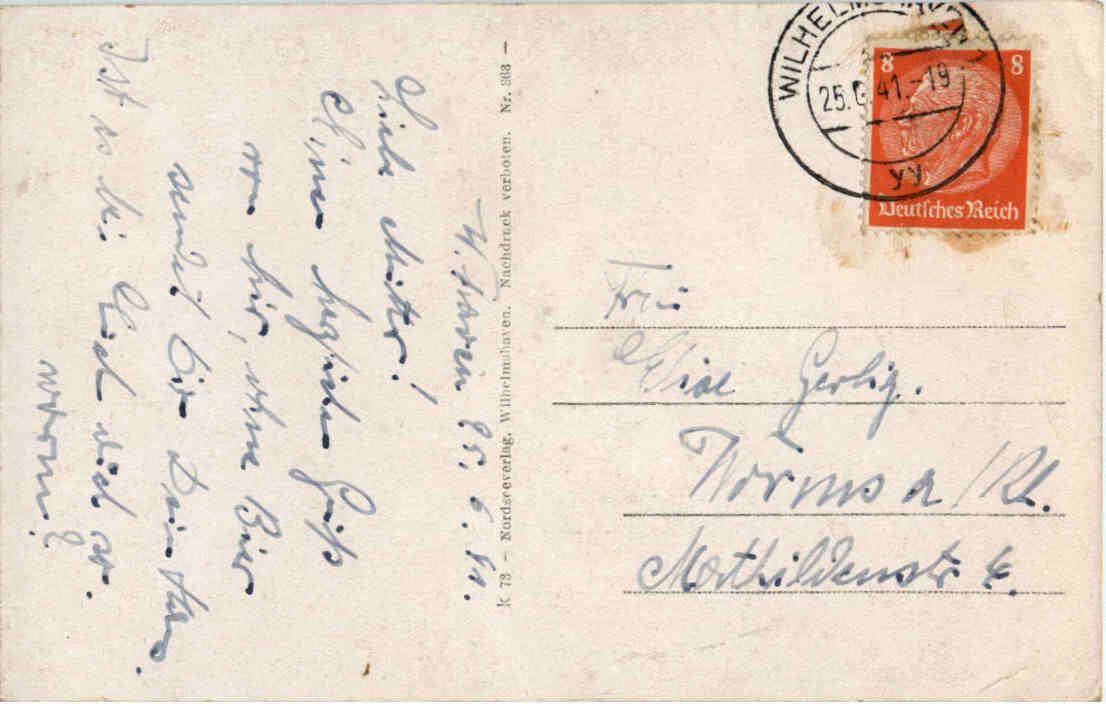 W.haven 25.6.41.
Liebe Mutter!
Einen herzlichen Gruß
von hier, ohne Bier
sendet Dir Dein
Ist es bei Euch auch so
warm?
K 73 – Nordseeverlag, Wilhelmshaven. Nachdruck verboten. Nr. 868 –
WILHELMSHAVEN 1
25.6.41.-19
yy
8 8
Deutsches Reich
Frau
Gerbig.
Worms a/Rh.
Mathildenstr